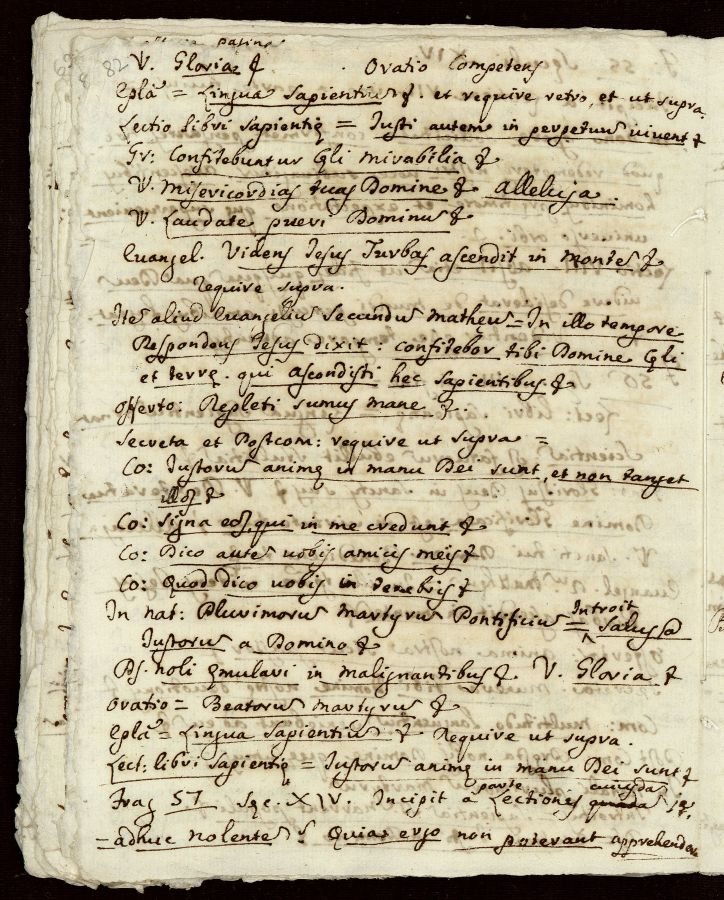 82
pagina
V. Gloria & Oratio Competens
Epla = Lingua Sapientiu &. et require retro, et ut supra.
Lectio libri sapientię = Justi autem in perpetuu vivent &
Gr: Confitebuntur Cęli mirabilia &
V. Misericordias tuas Domine & alleluja
V. Laudate pueri Dominu &
Euangel. Videns Jesus Turbas ascendit in monte &
require supra.
Ite aliud Euangeliu Secundu Matheu = In illo tempore
Respondens Jesus dixit: confitebor tibi Domine Cęli
et terrę. qui ascondisti hęc sapientibus &
offerto: Repleti sumus mane &.
Secreta et Postcom: require ut supra =
Co: Justoru animę in manu Dei sunt, et non tanget
illos &
Co: Signa eos, qui in me credunt &
Co: Dico aute vobis amicis meis &
Co: Quod dico vobis in tenebris &
In nat: Plurimoru Martyru Pontificiu = Introit Salus
Justoru a Domino &
Ps. Noli ęmulari in malignantibus &. V. Gloria &
Oratio = Beatoru Martyru &
Epla = Lingua Sapientiu & Require ut supra.
Lect: libri Sapientię = Justoru animę in manu Dei sunt &
Frag 57 Sęc. XIV. Incipit a parte Lectionis cuiusda
– adhuc nolente s Quia ergo non poterant apprehendere